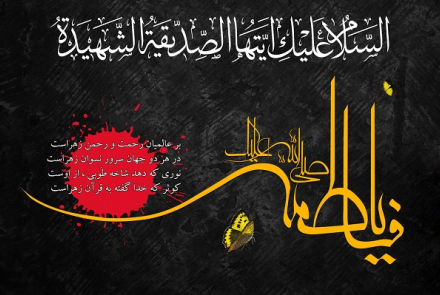 السَّلامُ عَلَيْكِ اَيَّتُهَا الصِّدّيقَةُ الشَّهيدَةُ
یا فاطمة
صلی الله علیک
بر عالمیان رحمت و رحمن زهراست
در هر دو جهان سرور نسوان زهراست
نوری که دهد شاخه طوبی ، از اوست
کوثر که خدا گفته به قرآن زهراست